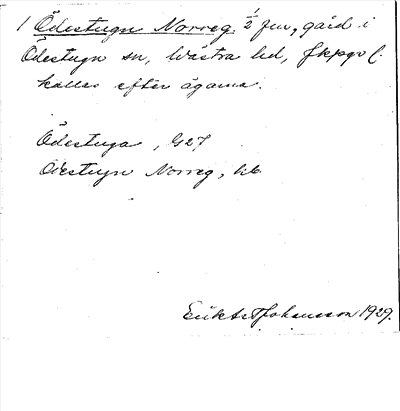 1 Ödestugn Norreg. 1/2 jur, gård i
Ödestugn sn, Västra hd, Jkpgs l.
kallas efter ägarna.
Ödestuga, G27
Ödestugn Norreg, kb.
Erik Johansson 1929.